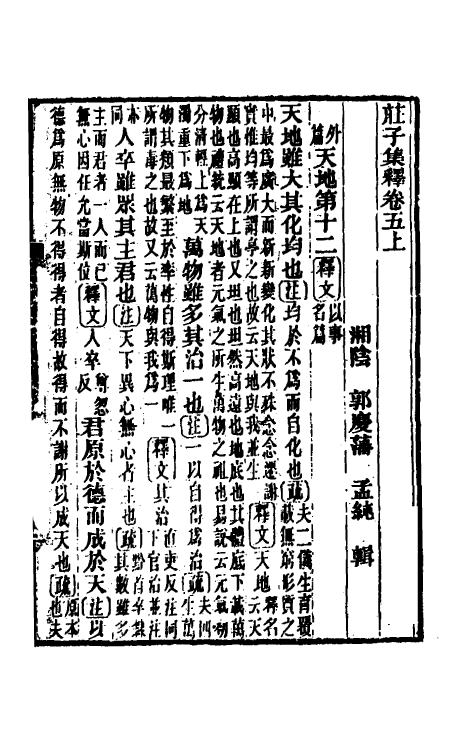 莊子集釋卷五上
湘陰 郭慶藩 孟純 輯
外篇 天地第十二 釋文 以事名篇
天地雖大其化均也 注 均於不爲而自化也 疏 夫二儀生育覆載無窮形質之
中最爲廣大而新新變化其狀不殊念念遷謝實惟均等所謂亭之也故云天地與我並生 釋文 天地 釋名云天
顯也高顯在上也又坦也坦然高遠也地底也其體底下載萬物也禮統云天地者元氣之所生萬物之祖也易說云元氣初
分清輕上爲天濁重下爲地 萬物雖多其治一也 注 一以自得爲治 疏 夫四生萬
物其類最繁至於率性自得斯理唯一所謂毒之也故又云萬物與我爲一 釋文 其治 直吏反注同下官治並注
同 人卒雖眾其主君也 注 天下異心無心者主也 疏 黔首卒隸其數雖多
主而君者一人而已無心因任允當斯位 釋文 人卒 尊忽反 君原於德而成於天 注 以
德爲原無物不得得者自得故得而不謝所以成天也 疏 原本也夫